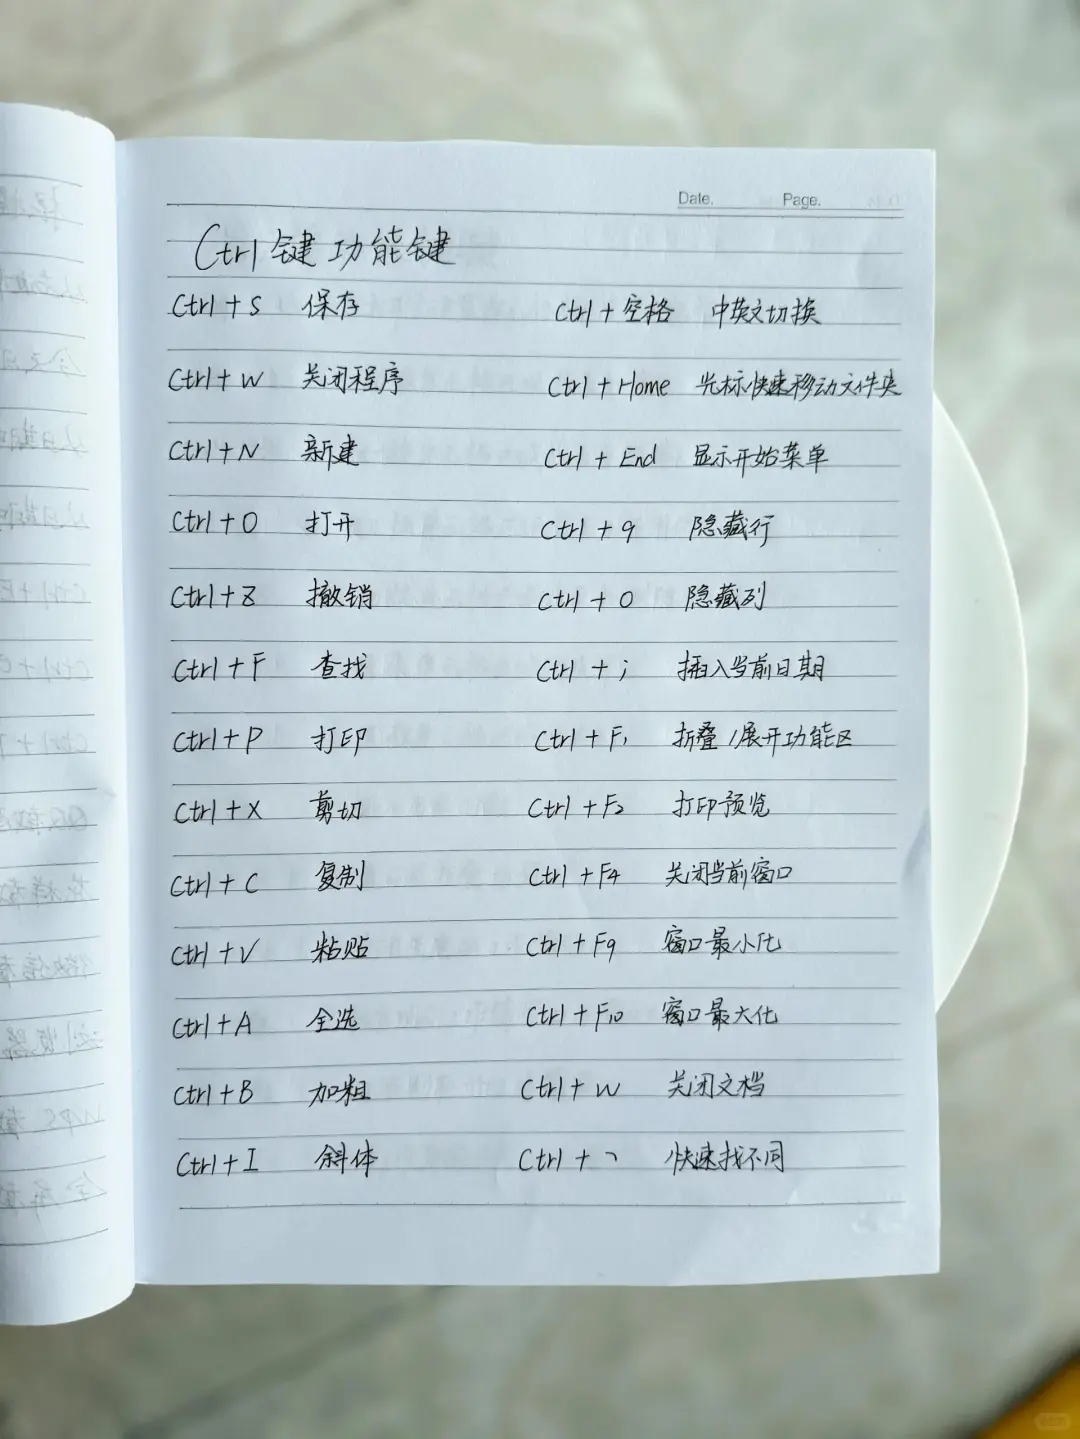 Date. Page.
Ctrl键 功能键
Ctrl+S 保存 Ctrl+空格 中英文切换
Ctrl+W 关闭程序 Ctrl+Home 光标快速移动文件夹
Ctrl+N 新建 Ctrl+End 显示开始菜单
Ctrl+O 打开 Ctrl+9 隐藏行
Ctrl+Z 撤销 Ctrl+0 隐藏列
Ctrl+F 查找 Ctrl+; 插入当前日期
Ctrl+P 打印 Ctrl+F1 折叠/展开功能区
Ctrl+X 剪切 Ctrl+F2 打印预览
Ctrl+C 复制 Ctrl+F4 关闭当前窗口
Ctrl+V 粘贴 Ctrl+F9 窗口最小化
Ctrl+A 全选 Ctrl+F10 窗口最大化
Ctrl+B 加粗 Ctrl+W 关闭文档
Ctrl+I 斜体 Ctrl+ 快速找不同